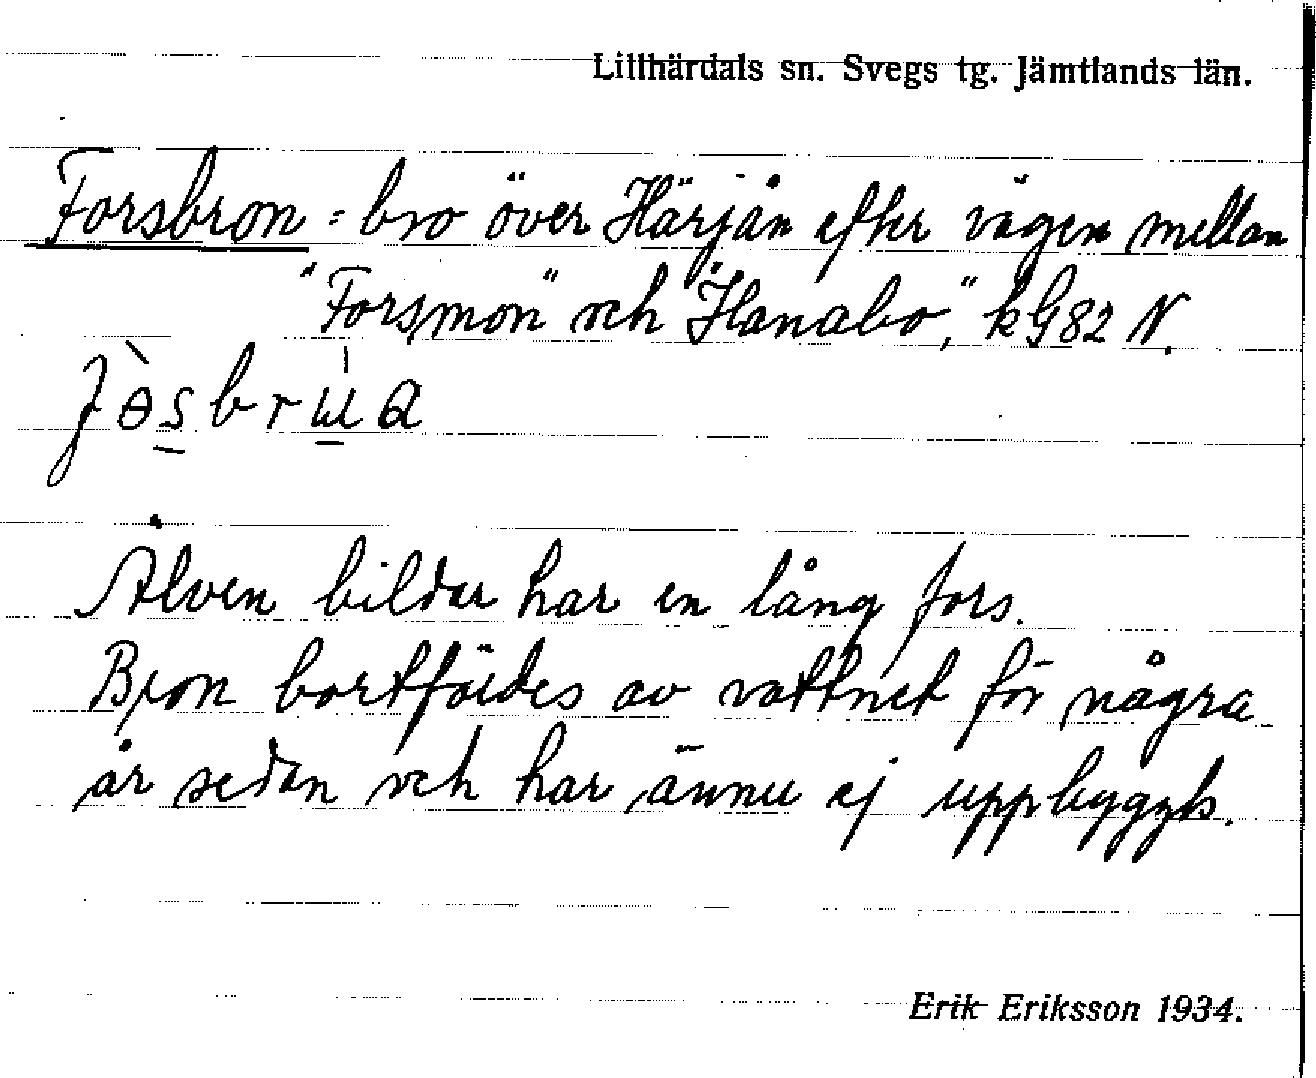 Lillhärdals sn. Svegs tg. Jämtlands län.
Forsbron = bro över Härjån efter vägen mellan
"Forsmon" och "Hanabo," kG82 N.
fɵ̀sbrɯ̀a
Älven bildar här en lång fors.
Bron bortfördes av vattnet för några
år sedan och har ännu ej uppbyggts.
Erik Eriksson 1934.